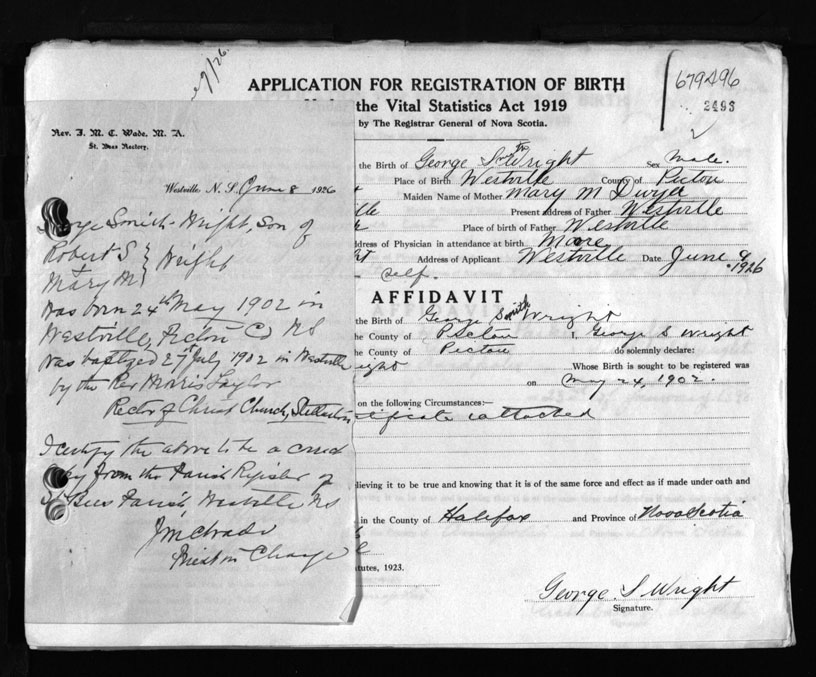 9/26.
APPLICATION FOR REGISTRATION OF BIRTH
the Vital Statistics Act 1919
by The Registrar General of Nova Scotia.
679496
2493
Rev. J. M. C. Wade, M. A.
St. Bees Rectory.
Westville, N. S. June 8 1926
George Smith-Wright, Son of
Robert S }
Mary M } Wright
Was born 24th May 1902 in
Westville, Picton Co NS
Was baptized 27th July, 1902 in Westville
by the Rev Morris Taylor
Rector of Christ Church, Stellarton
I certify the above to be a correct
copy from the Parish Register of
St Bees Parish, Westville NS
JMC Wade
Priest in Charge
the Birth of George Smith Wright Sex Male.
Place of Birth Westville County of Picton
Maiden Name of Mother Mary M Dwyer
Present Address of Father Westville
Place of birth of Father Westville
Address of Physician in attendance at birth Moore
Address of Applicant Westville Date June 9
1926
self.
AFFIDAVIT
the Birth of George Smith Wright
the County of Picton I, George S Wright
the County of Picton do solemnly declare:
Wright Whose Birth is sought to be registered was
on May 24, 1902.
on the following Circumstances:—
certificate attached
believing it to be true and knowing that it is of the same force and effect as if made under oath and
in the County of Halifax and Province of Nova Scotia
Statutes, 1923.
George. S Wright
Signature.